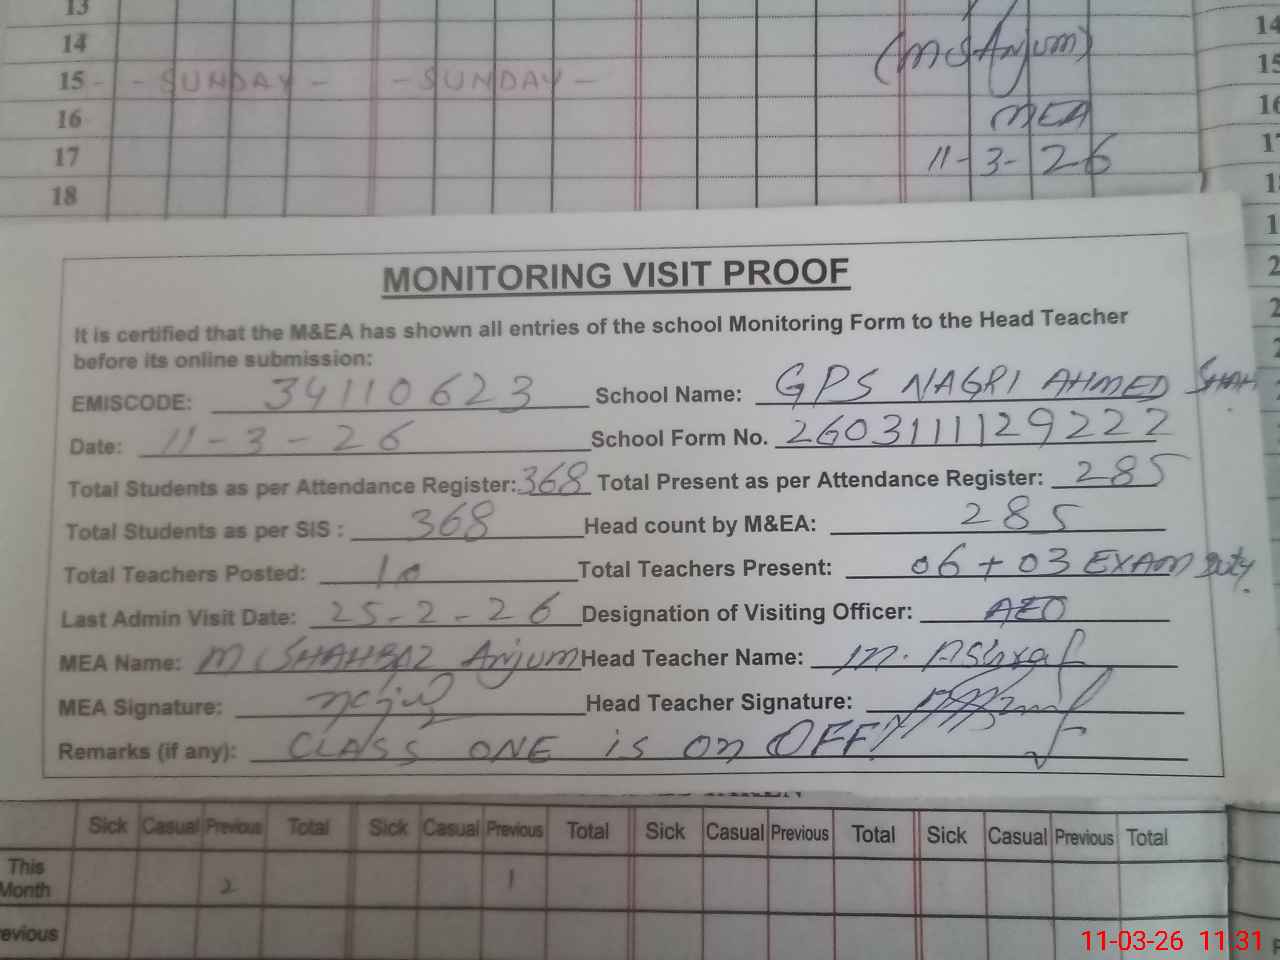 13
14 14
15 - - SUNDAY - - SUNDAY - (MSAnjum) 15
16 MEA 16
17 11-3-26
18
MONITORING VISIT PROOF
It is certified that the M&EA has shown all entries of the school Monitoring Form to the Head Teacher
before its online submission:
EMISCODE: 34110623 School Name: GPS NAGRI AHMED SHAH
Date: 11-3-26 School Form No. 2603111129222
Total Students as per Attendance Register: 368 Total Present as per Attendance Register: 285
Total Students as per SIS : 368 Head count by M&EA: 285
Total Teachers Posted: 10 Total Teachers Present: 06+03 EXAM Duty.
Last Admin Visit Date: 25-2-26 Designation of Visiting Officer: AEO
MEA Name: M SHAHBAZ Anjum Head Teacher Name: M. Ashraf
MEA Signature: Head Teacher Signature:
Remarks (if any): CLASS ONE is on OFF
Sick Casual Previous Total Sick Casual Previous Total Sick Casual Previous Total Sick Casual Previous Total
This
Month 2 1
evious
11-03-26 11:31